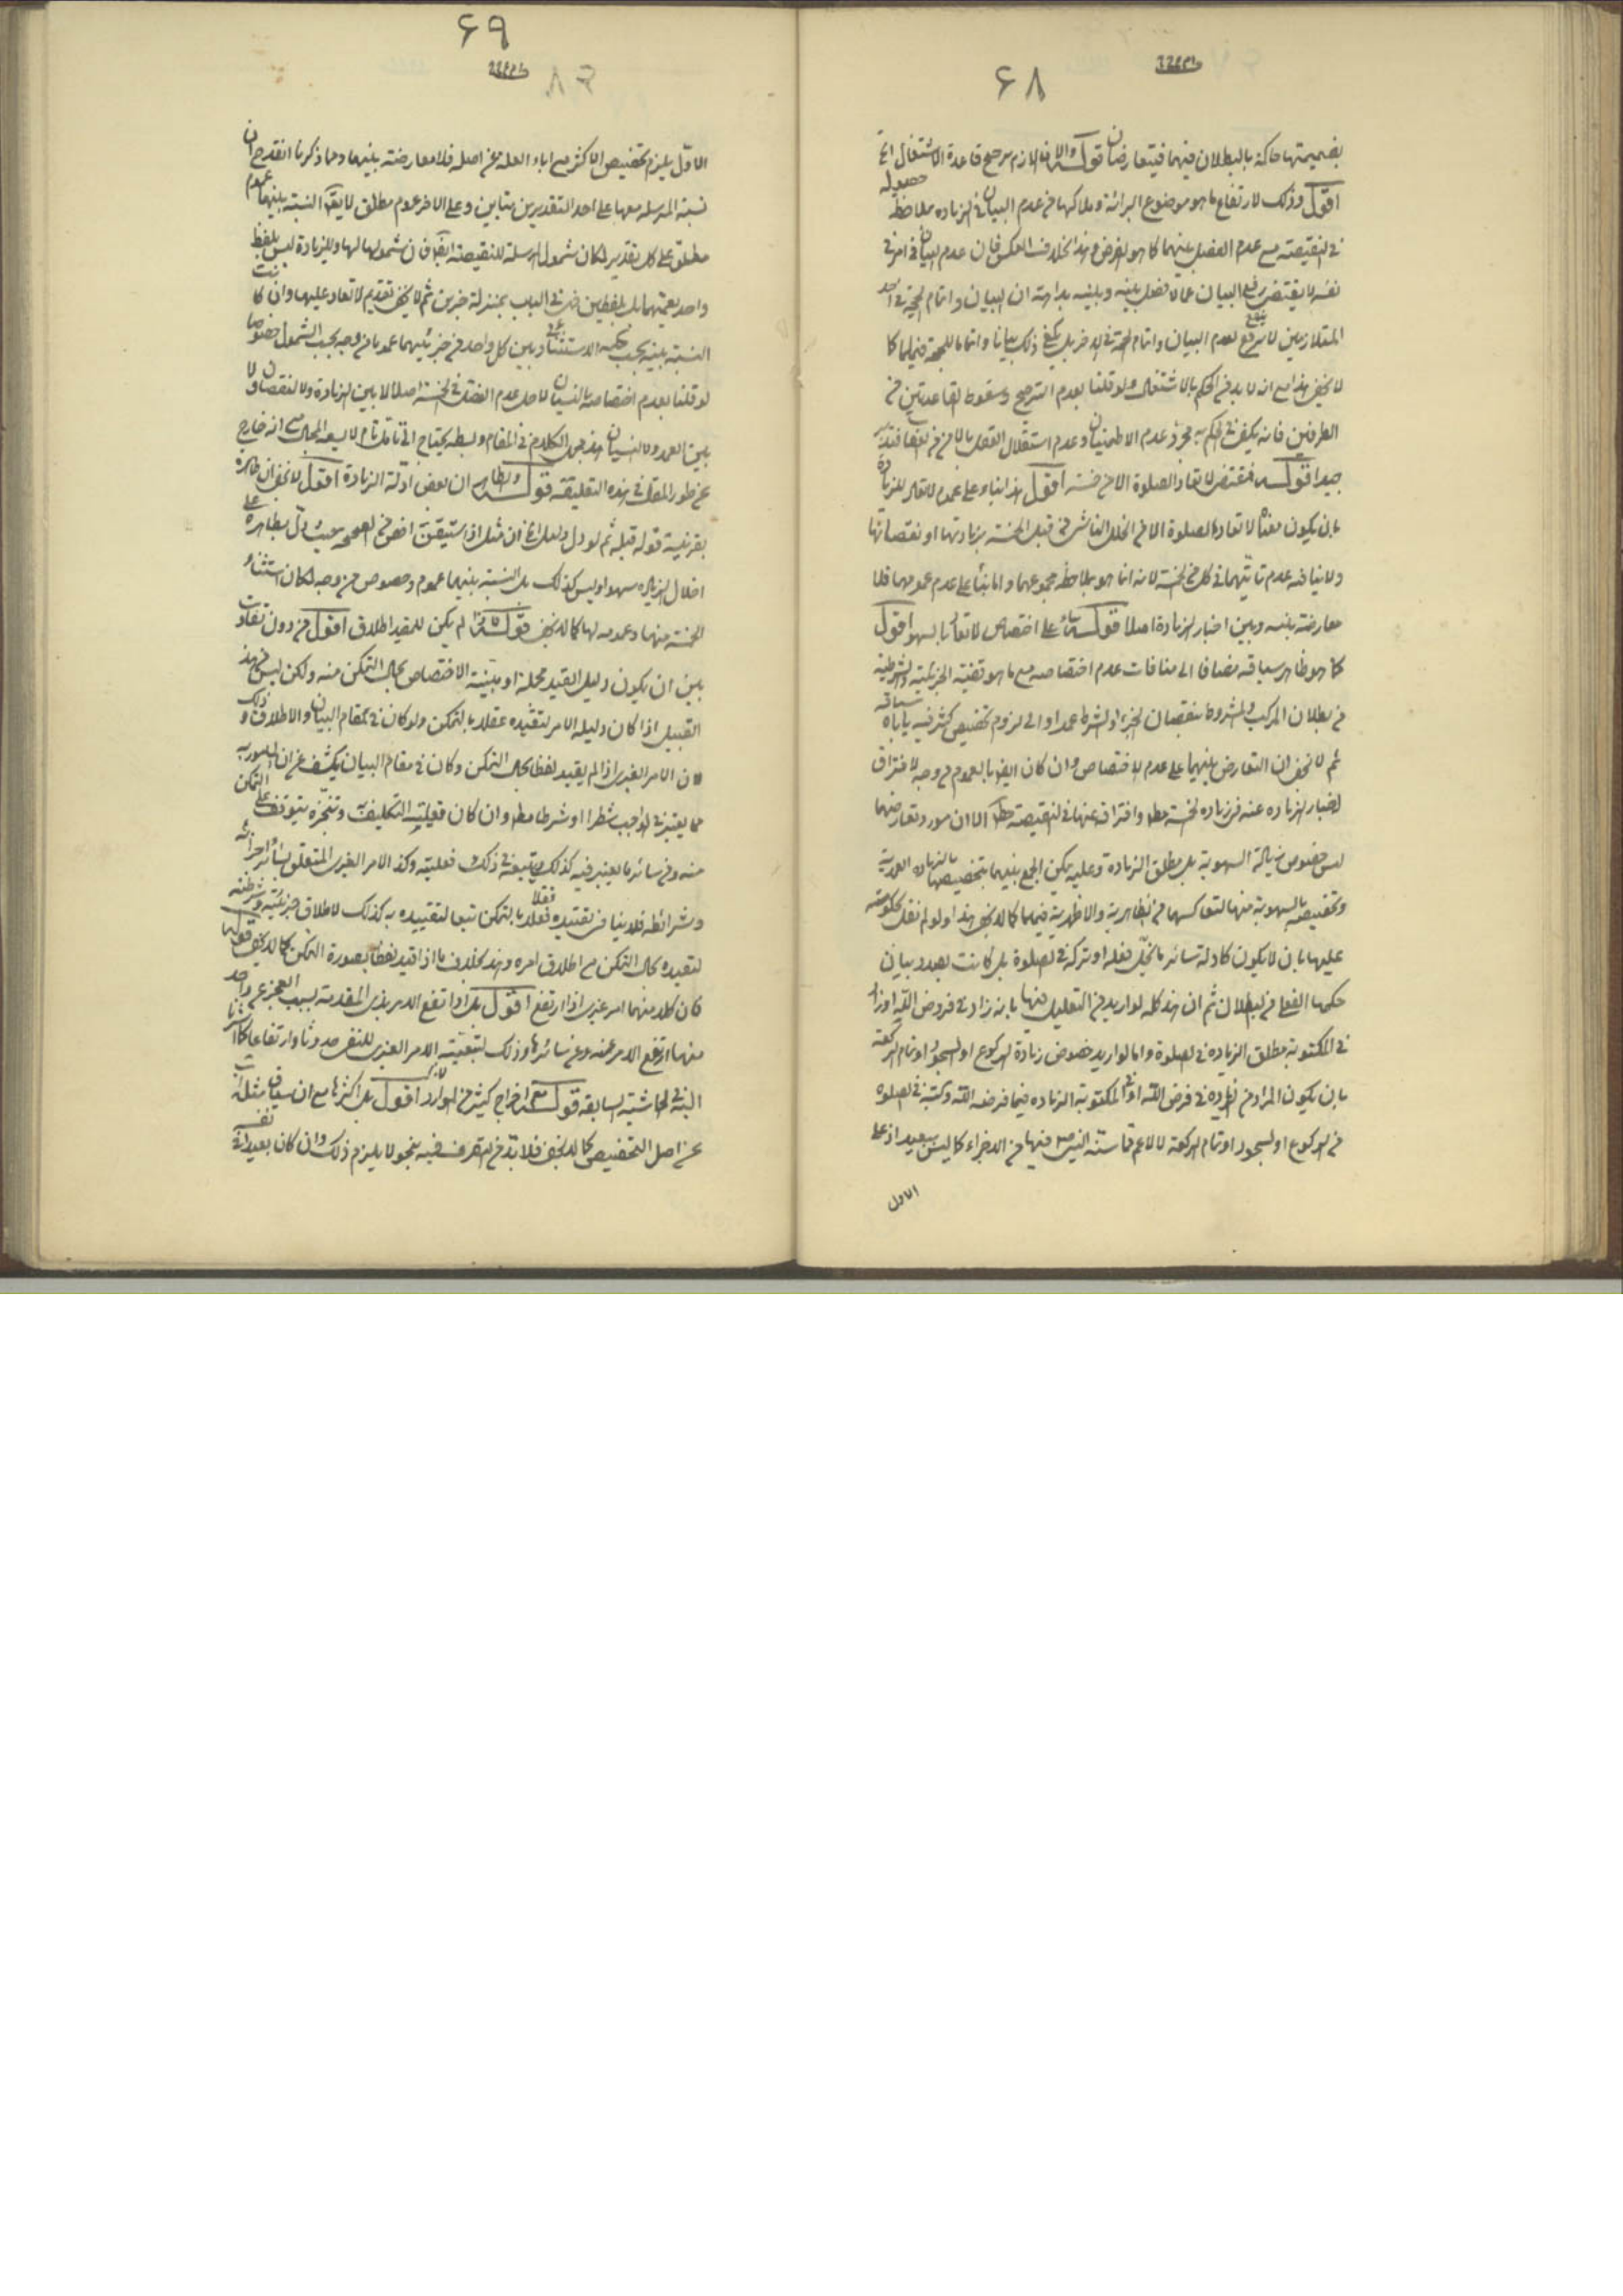 ۶۸
بضميمتها حاكمة بالبطلان فيهما فيتعارضان قوله والا فاللازم مرجع قاعدة الاشتغال
اقول وذلك لارتفاع ما هو موضوع البرائة وملاكها من عدم البيان فى الزيادة بملاحظة حصوله
فى النقيصة مع عدم الفصل بينهما كما هو الفرض وهذا بخلاف العكس فان عدم البيان فى امر فى
نفسه لا يقتضى رفع البيان عما لا فصل بينه وبينه بداهة ان البيان واتمام الحجة فى احد
المتلازمين لا يرتفع لعدم البيان واتمام الحجة فى الاخر بل يكفى ذلك بيانا واتماما للحجة فيهما كما
لا يخفى هذا مع انه لا بد من الحكم بالاشتغال ولو قلنا بعدم الترجيح وسقوط القاعدتين من
الطرفين فانه يكفى فى الحكم به مجرد عدم الاطمينان وعدم استقلال العقل بالامن من العقاب فتدبر
جيدا قوله فمقتضى لا تعاد الصلوة الا من خمسة اقول هذا بناء على عموم لا تعاد للزيادة
بان يكون معناه لا تعاد الصلوة الا من الخلل الناشى من قبل الخمسة بزيادتها او نقصانها
ولا ينافيه عدم تاتيهما فى كل من الخمسة لانه انما هو بملاحظة مجموعهما واما بناء على عدم عمومها فلا
معارضة بينه وبين اخبار الزيادة اصلا قوله بناء على اختصاص لا تعاد بالسهو اقول
كما هو ظاهر سياقه مضافا الى منافات عدم اختصاصه مع ما هو قضية الجزئية والشرطية
من بطلان المركب والمشروط بنقصان الجزء او الشرط عمدا والى لزوم تخصيص كثير فيه ياباه سياقه
ثم لا يخفى ان التعارض بينهما على عدم الاختصاص وان كان ايضا بالعموم من وجه لافتراق
اخبار الزيادة عنه فى زيادة الخمسة مطلقا وافتراقه عنها فى النقيصة مطلقا الا ان مورد تعارضهما
ليس خصوص الزيادة السهوية بل مطلق الزيادة وعليه يمكن الجمع بينهما بتخصيصها بالزيادة العمدية
وتخصيصه بالسهوية منها لتعاكسهما فى الظاهرية والاظهرية فيهما كما لا يخفى هذا ولو لم نقل بحكومته
عليها بان لا يكون كادلة سائر ما يخل فعله او تركه فى الصلوة بل كانت بصدد بيان
حكمها الفعلى من البطلان ثم ان هذا كله لو اريد من التعليل فيها بانه زاد فى فروض الله او زاد
فى المكتوبة مطلق الزيادة فى الصلوة واما لو اريد خصوص زيادة الركوع او السجود او تمام الركعة
بان يكون المراد من الزيادة فى فرض الله او فى المكتوبة الزيادة فيما فرضه الله وكتبه فى الصلوة
من الركوع او السجود او تمام الركعة لا الاعم مما سنه النبى ص فيها من الاجزاء كما ليس ببعيد اذ على
الاول
۶۹
الاول يلزم تخصيص الاكثر مع اباء العلة عن اصله فلا معارضة بينهما ومما ذكرنا انقدح ان
نسبة المرسلة معها على احد التقديرين تباين وعلى الاخر عموم مطلق لا يقال النسبة بينهما عموم
مطلق على كل تقدير لمكان شمول المرسلة للنقيصة لانا نقول فان شمولها لها وللزيادة ليس بلفظ
واحد يعمهما بل بلفظين فهى فى الباب بمنزلة خبرين ثم لا يخفى تقديم لا تعاد عليها وان كانت
النسبة بينه بحسب حكمه الاستثنائى وبين كل واحد من جزئيهما عموما من وجه بحسب الشمول خصوصا
لو قلنا بعدم اختصاصه بالنسيان لاجل عدم الفصل فى الخمسة اصلا لا بين الزيادة ولا النقصان ولا
بين العمد ولا النسيان هذا مجمل الكلام فى المقام وبسطه يحتاج الى تامل تام لا يسعه المجال مع انه خارج
عن طور المقال فى هذه التعليقة قوله والظاهر ان بعض ادلة الزيادة اقول لا يخفى ان ظاهره
بقرينة قوله قبله ثم لو دل دليل الخ ان مثل اذا استيقن اخص من الصحيحة حيث دل بظاهره على
اخلال الزيادة سهوا وليس كذلك بل النسبة بينهما عموم وخصوص من وجه لمكان استثناء
الخمسة منها وعمومه لها كما لا يخفى قوله لم يكن للمقيد اطلاق اقول من دون تفاوت
بين ان يكون دليل القيد مجملا او مبينه الاختصاص بحال التمكن منه ولكن ليس من هذا
القبيل اذا كان دليله الامر لتقييده عقلا بالتمكن ولو كان فى مقام البيان والاطلاق وذلك
لان الامر الغيرى اذا لم يقيد لفظا بحال التمكن وكان فى مقام البيان يكشف عن ان المامور به
مما يعتبر فى الواجب شطرا او شرطا مطلقا وان كان فعلية التكليف به وتنجزه يتوقف على التمكن
منه ومن سائر ما يعتبر فيه كذلك ويتبعه فى ذلك فعليته وكذا الامر الغيرى المتعلق بسائر اجزائه
وشرائطه فلا ينافى تقييده فعلا بالتمكن تبعا لتقييده به كذلك لاطلاق جزئيته وشرطيته
لتقييده بحال التمكن مع اطلاق امره وهذا بخلاف ما اذا قيد لفظا بصورة التمكن كما لا يخفى قوله
كان كلا منهما امر غيرى اذا ارتفع اقول بل اذا ارتفع الامر بذى المقدمة بسبب العجز عن واحد
منها ارتفع الامر عنه وعن سائرها وذلك لتبعية الامر الغيرى للنفسى حدوثا وارتفاعا كما اشرنا
اليه فى الحاشية السابقة قوله مع اخراج كثير من الموارد اقول بل اكثرها مع ان سياق مثله آب
عن اصل التخصيص كما لا يخفى فلا بد من التصرف فيه بنحو لا يلزم ذلك وان كان بعيدا فى نفسه